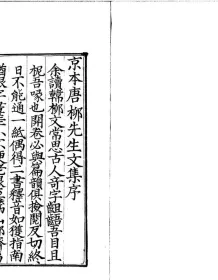 京本唐柳先生文集序
余讀韓柳文常思古人奇字齟齬吾目且
吾喙也開卷必與篇韻俱撿閱反切終
日不能通一紙偶得二書釋音如獲指南